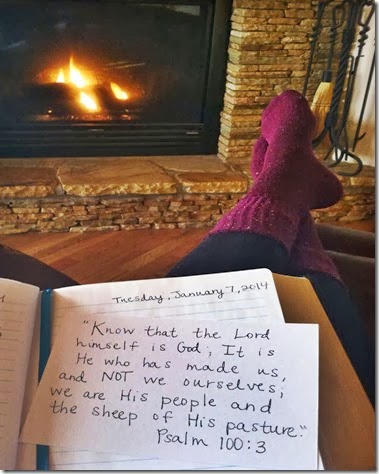 Tuesday, January 7, 2014
"Know that the Lord
himself is God; It is
He who has made us,
and NOT we ourselves;
we are His people and
the sheep of His pasture."
Psalm 100:3